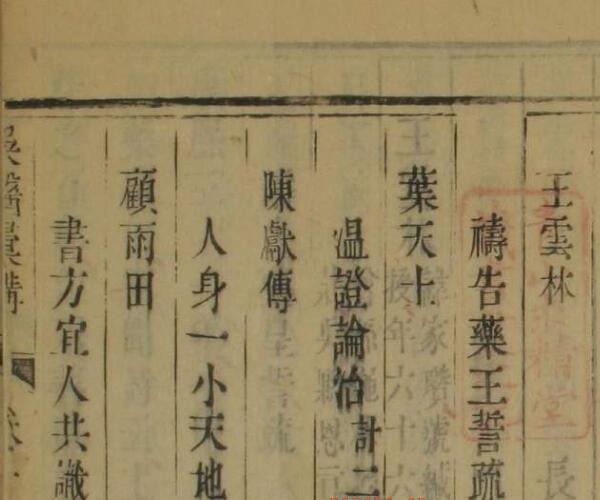 王雲林
禱告藥王誓疏
葉天士
溫證論治 計二
陳獻傳
人身一小天地
顧雨田
書方宜人共識
吳醫彙講